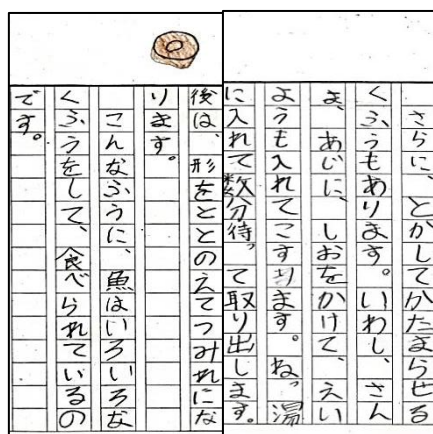 さらに、とかしてかたまらせる
くふうもあります。いわし、さん
ま、あじに、しおをかけて、えい
ようも入れてこすります。ねっ湯
に入れて数分待って取り出します。
後は、形をととのえてつみれにな
ります。
こんなふうに、魚はいろいろな
くふうをして、食べられているの
です。